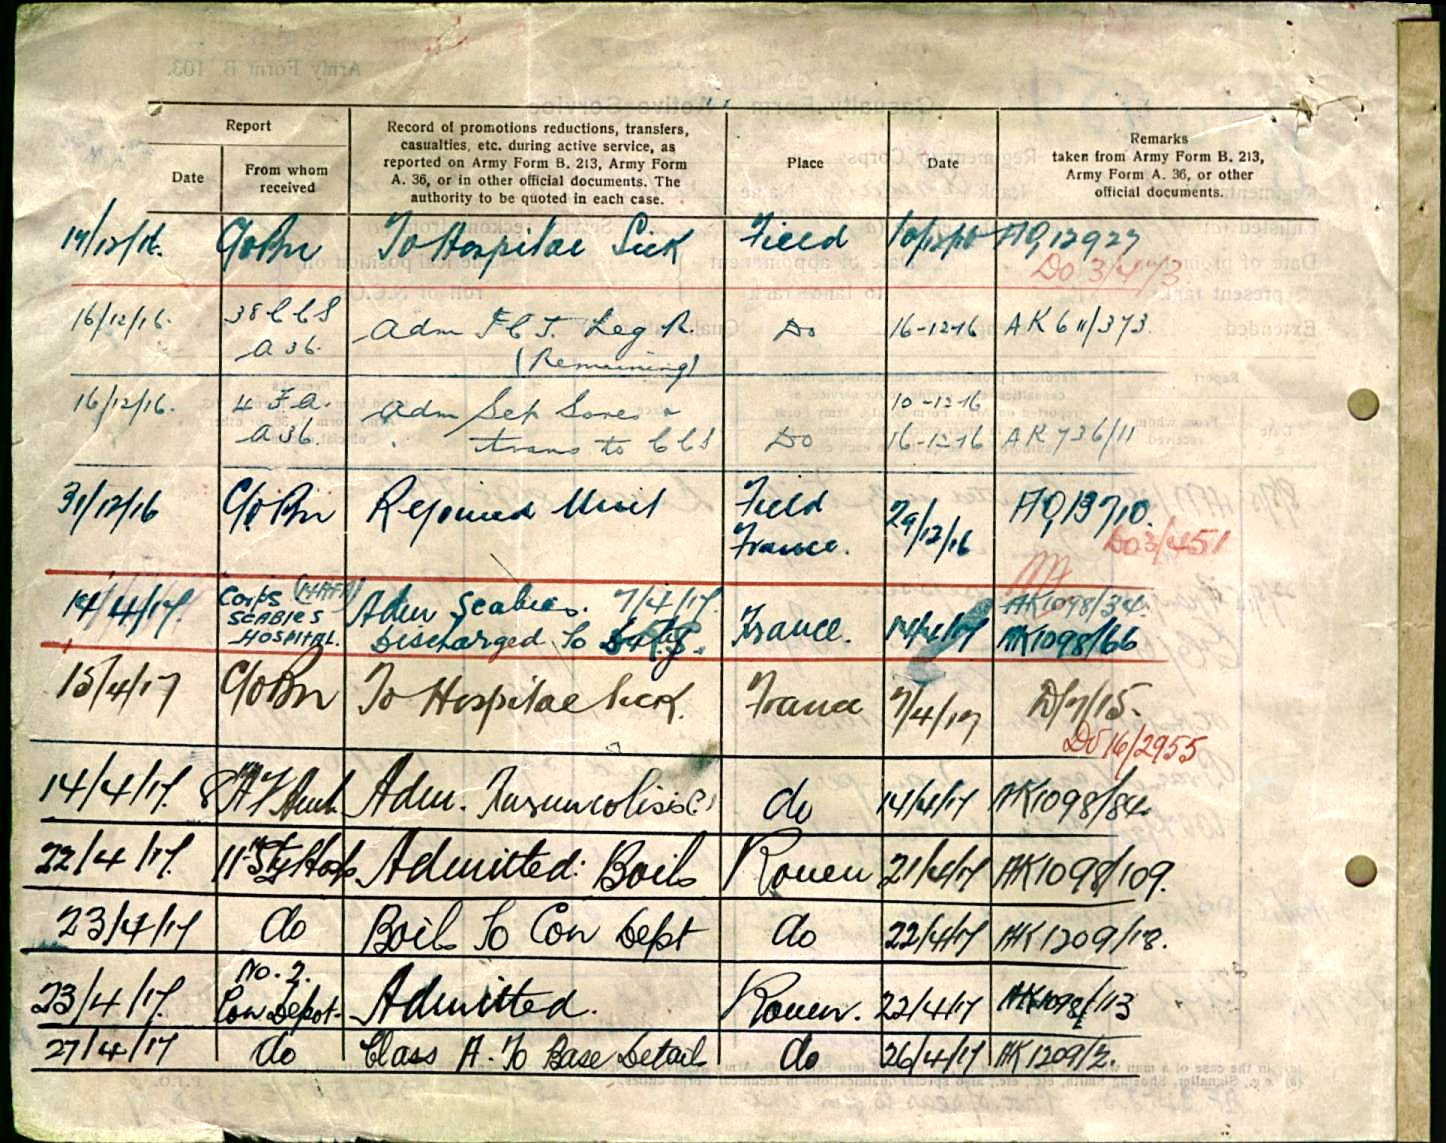 Report
Date
From whom
received
Record of promotions reductions, transfers,
casualties, etc. during active service, as
reported on Army Form B. 213, Army Form
A. 36, or in other official documents. The
authority to be quoted in each case.
Place
Date
Remarks
taken from Army Form B. 213,
Army Form A. 36, or other
official documents.
C/o Bn To Hospital Sick Field 10/12/16
Do 3/4/73
16/12/16. 38 CCS Adm I C T. Leg R. Do 16-12-16 AK 611/373
A 36. (Remaining)
16/12/16. 4 F.A. Adm Sep Sores & 10-12-16
A 36. trans to CCS Do 16-12-16 AK 736/11
31/12/16 C/o Bn Rejoined Unit Field 29/12/16
France. Do 3/451
14/4/17. Corps Adm Scabies. 7/4/17. AK1098/34
SCABIES France. 14/4/17
HOSPITAL. Discharged to Duty. AK1098/66
15/4/17 C/o Bn To Hospital Sick. France 7/4/17 D/7/15.
Do 16/2955
14/4/17. Adm. Furunculosis do 14/4/17 AK1098/84
22/4/17. 11 Sty Hosp Admitted: Boils Rouen 21/4/17 AK1098/109.
23/4/17 do Boils To Con Dept do 22/4/17 AK1209/18.
No. 2.
23/4/17. Con Depot. Admitted. Rouen. 22/4/17 AK1098/113
27/4/17 do Class A. To Base Details do 26/4/17 AK1209/2.